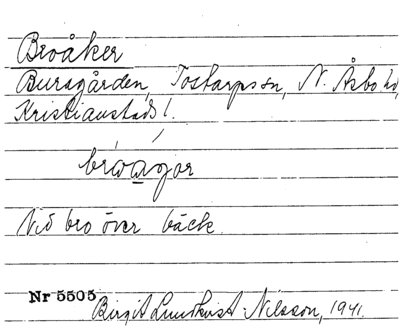 Broåker
Bursgården, Tostarps sn, N. Åsbo hd,
Kristianstads l.
bróágor
Vid bro över bäck.
Nr 5505
Birgit Lundkvist-Nilsson, 1941.